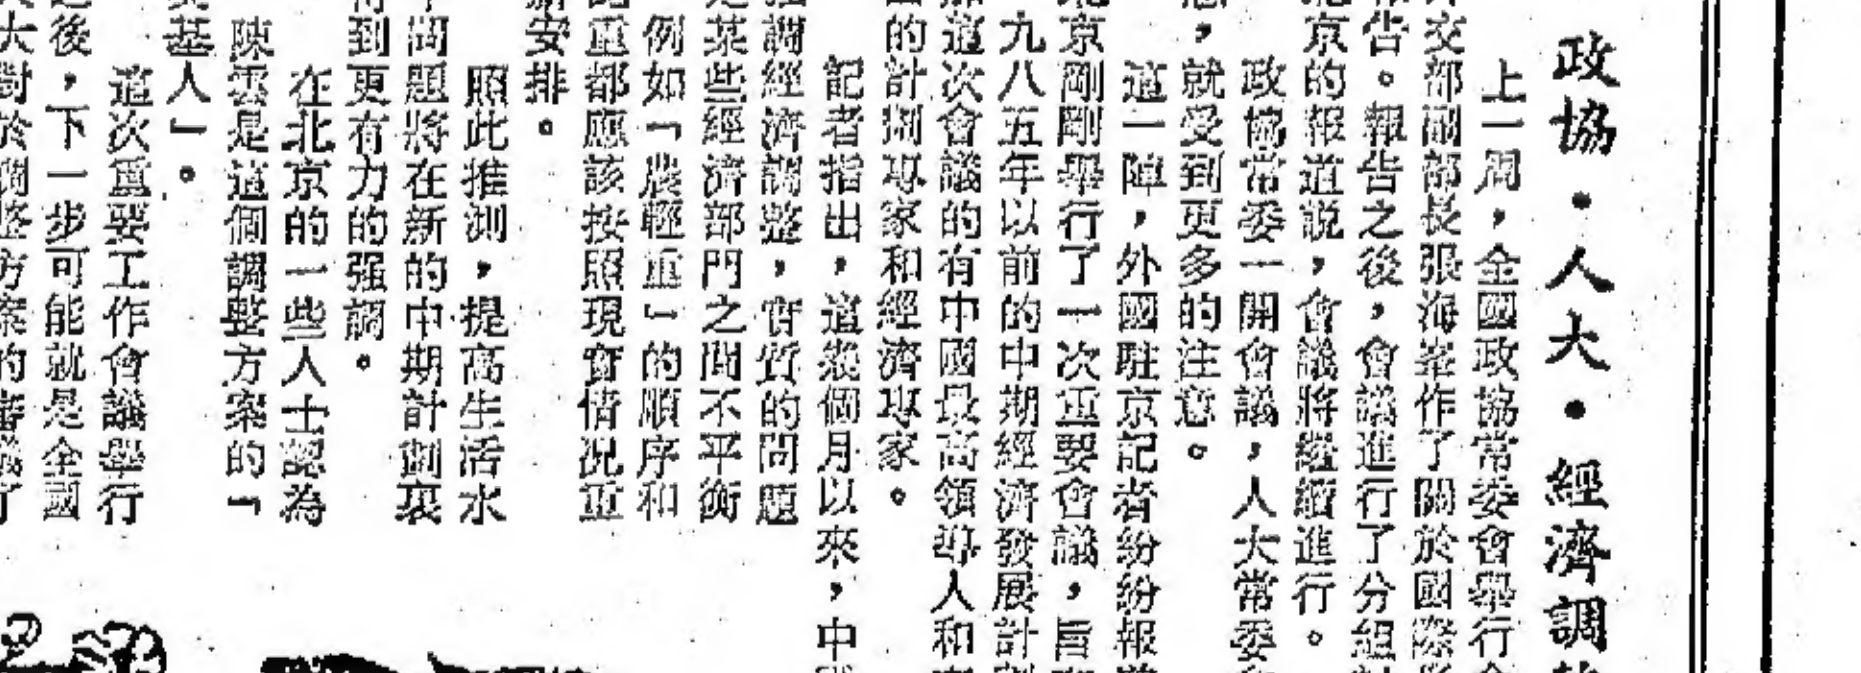 政協·人大·經濟調
上一周，全國政協常委會舉行
交部副部長張海峯作了關於國際
告。報告之後，會議進行了分組
京的報道說，會議將繼續進行。
政協常委一開會議，人大常委
，就受到更多的注意。
這一陣，外國駐京記者紛紛報
北京剛剛舉行了一次重要會議，旨
九八五年以前的中期經濟發展計
這次會議的有中國最高領導人和
的計劃專家和經濟專家。
記者指出，這幾個月以來，中
調經濟調整，實質的問題
某些經濟部門之間不平衡
例如「農輕重」的順序和
重都應該按照現實情况重
安排。
照此推測，提高生活水
問題將在新的中期計劃裏
得到更有力的强調。
在北京的一些人士認為
陳雲是這個調整方案的「
基人」。
這次重要工作會議舉行
後，下一步可能就是全國
大對於調整方案的審議了